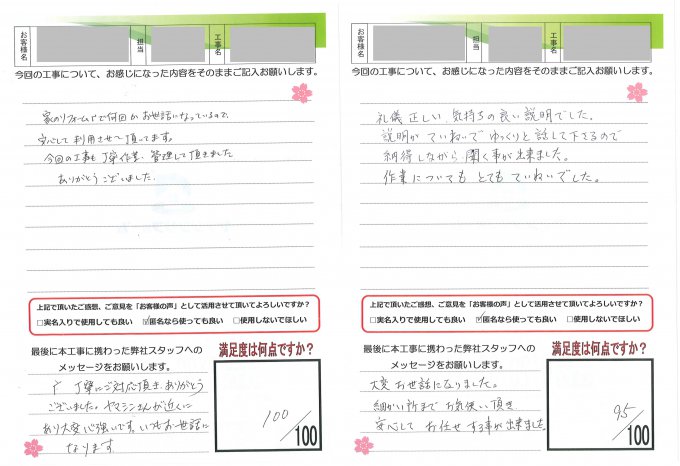 お客様名
担当
工事名
今回の工事について、お感じになった内容をそのままご記入お願いします。
家のリフォームで何回かお世話になっているので、
安心して利用させて頂ってます。
今回の工事も丁寧作業、管理して頂きました
ありがとうございました。
上記で頂いたご感想、ご意見を「お客様の声」として活用させて頂いてよろしいですか？
□実名入りで使用しても良い ☑匿名なら使っても良い □使用しないでほしい
最後に本工事に携わった弊社スタッフへの
メッセージをお願いします。
丁寧にご対応頂き、ありがとう
ございました。ヤマシンさんが近くに
あり大変心強いです。いつもお世話に
なります。
満足度は何点ですか？
100/100
お客様名
担当
工事名
今回の工事について、お感じになった内容をそのままご記入お願いします。
礼儀正しい、気持ちの良い説明でした。
説明が ていねいで ゆっくりと 話して下さるので
納得しながら 聞く事が出来ました。
作業についても とても ていねいでした。
上記で頂いたご感想、ご意見を「お客様の声」として活用させて頂いてよろしいですか？
□実名入りで使用しても良い ☑匿名なら使っても良い □使用しないでほしい
最後に本工事に携わった弊社スタッフへの
メッセージをお願いします。
大変お世話になりました。
細かい所まで お気使い頂き
安心して お任せする事が出来ました。
満足度は何点ですか？
95/100